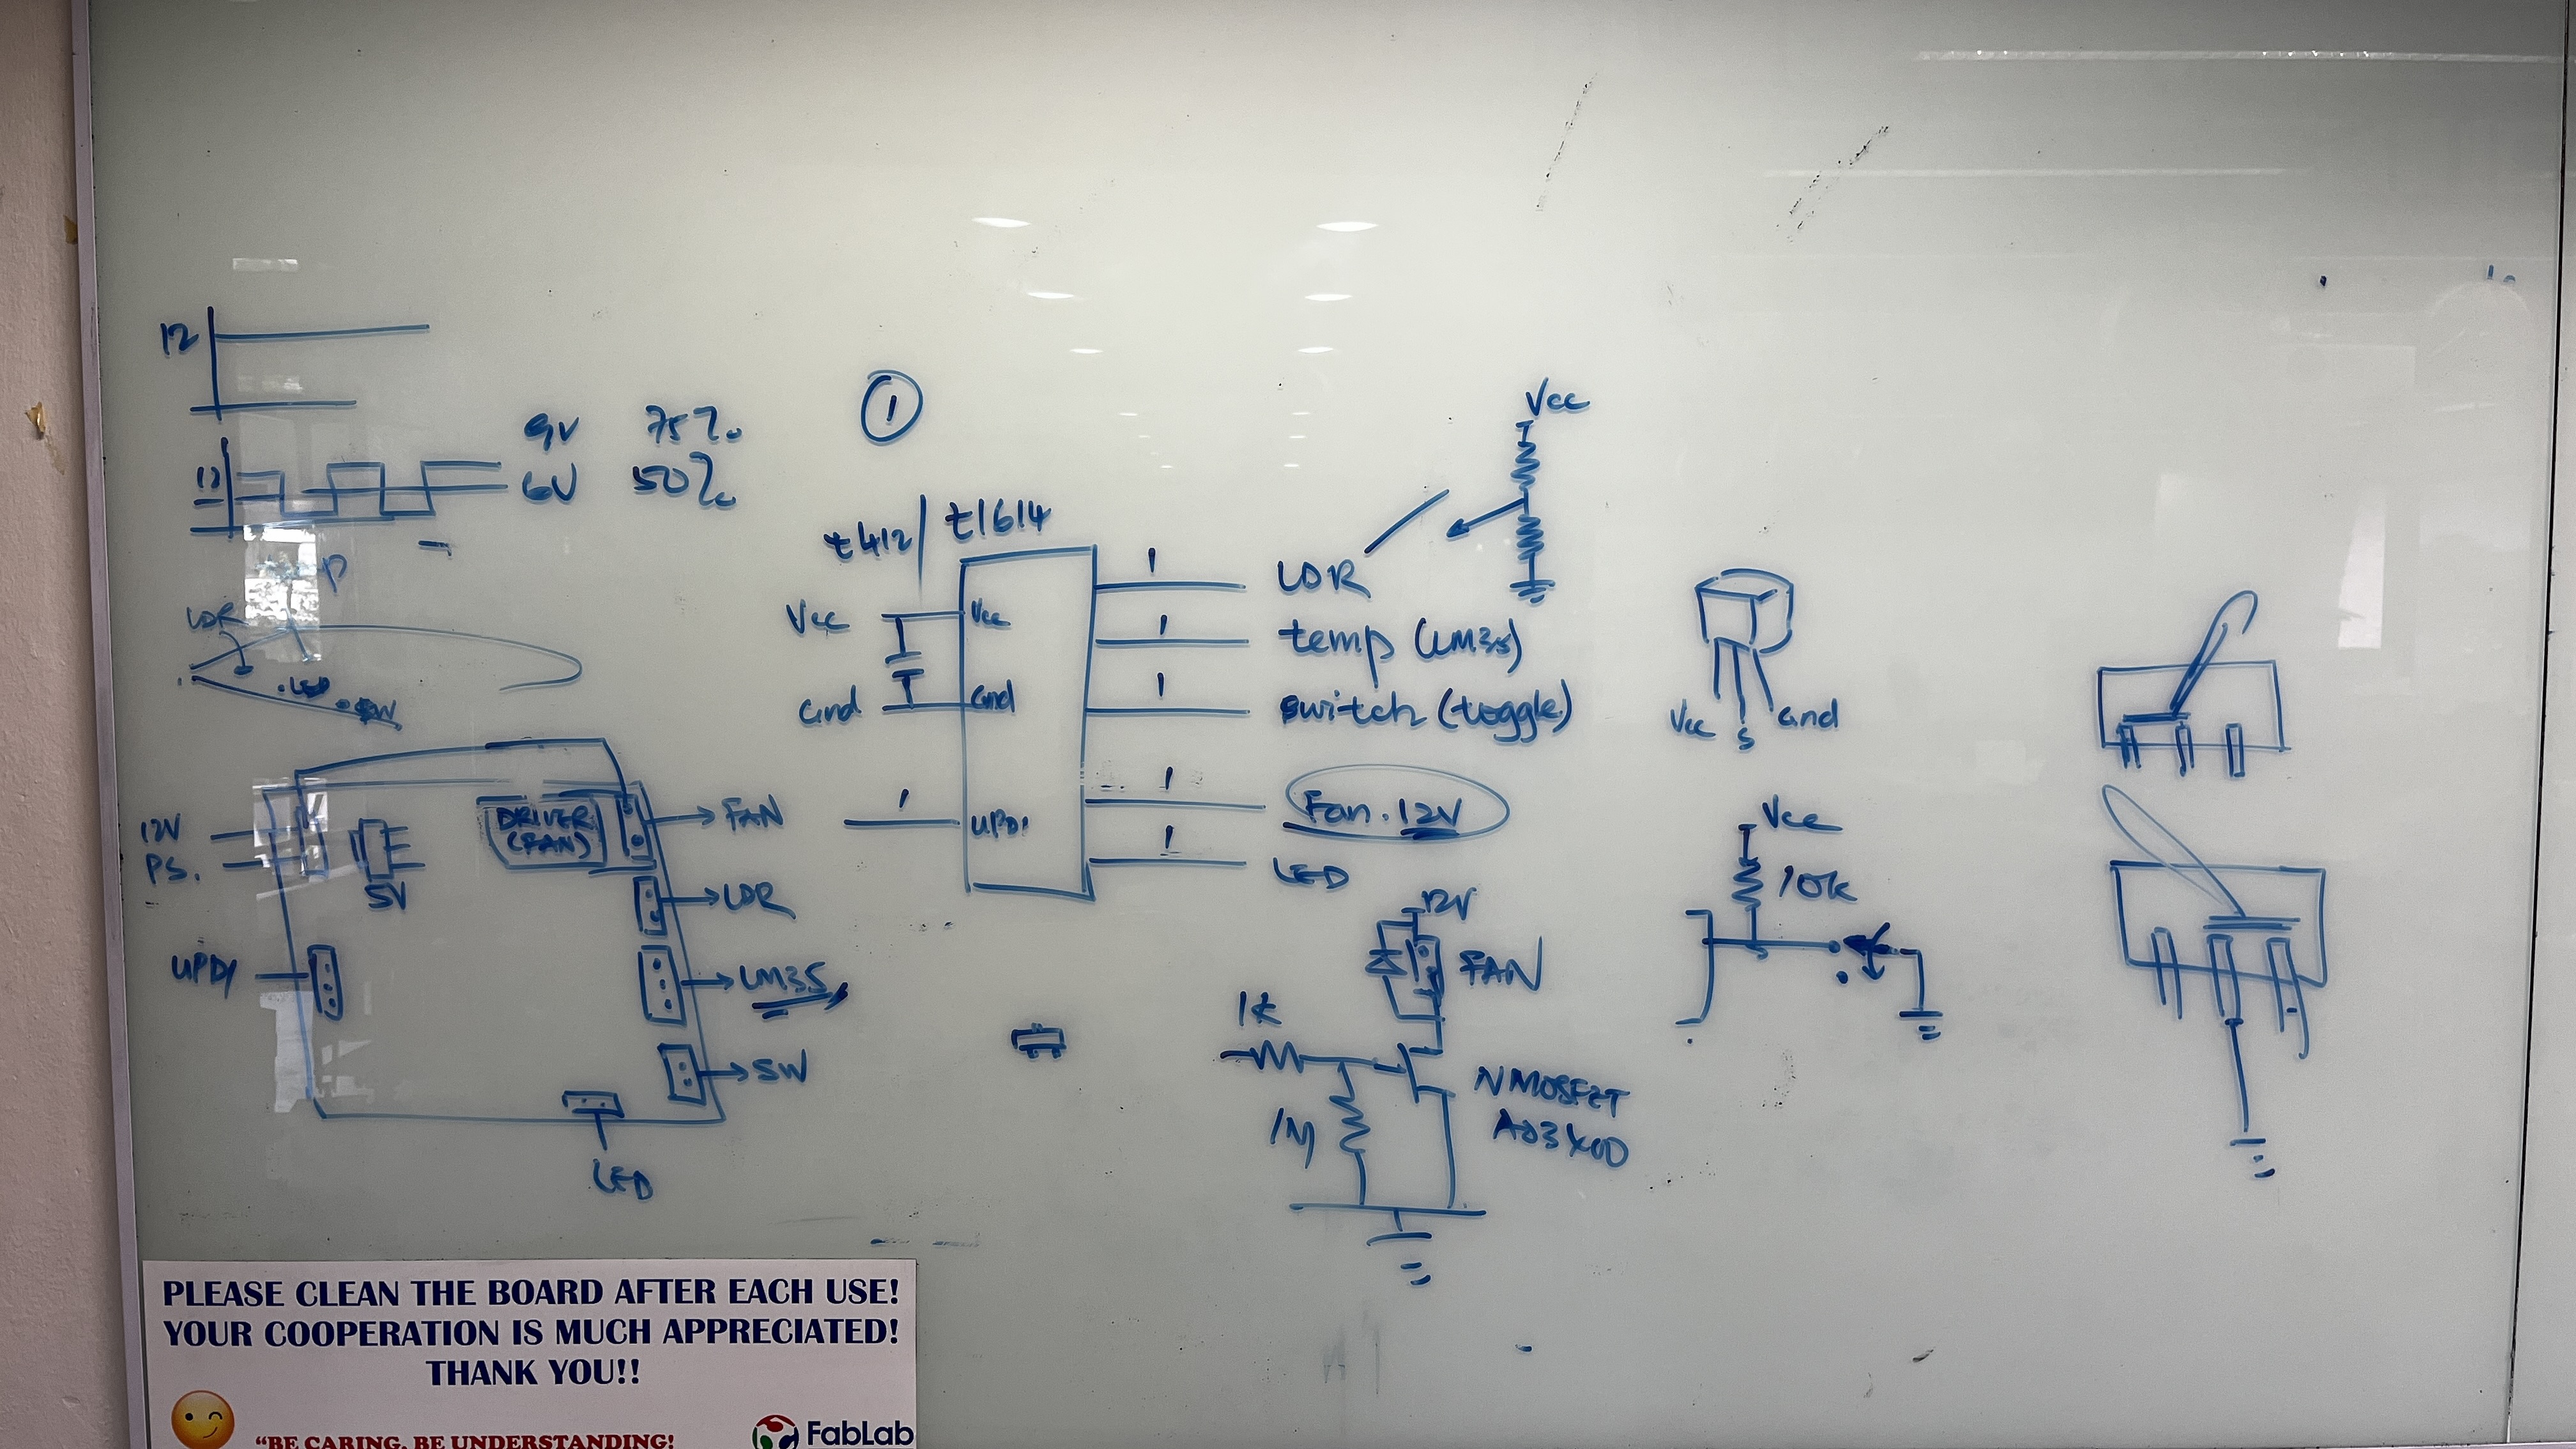 12
9V 75%
12 6V 50%
P
LDR
.LED
.SW
12V
PS.
5V
DRIVER
(FAN)
FAN
LDR
LM35
SW
UPDI
LED
1
t412 t1614
Vcc Vcc
Gnd Gnd
UPDI
1 LDR
1 temp (LM35)
1 switch (toggle)
1 Fan. 12V
1 LED
1
Vcc
Vcc S Gnd
12V
FAN
1k
1M
NMOSFET
Vcc
10k
PLEASE CLEAN THE BOARD AFTER EACH USE!
YOUR COOPERATION IS MUCH APPRECIATED!
THANK YOU!!
"BE CARING, BE UNDERSTANDING!
FabLab